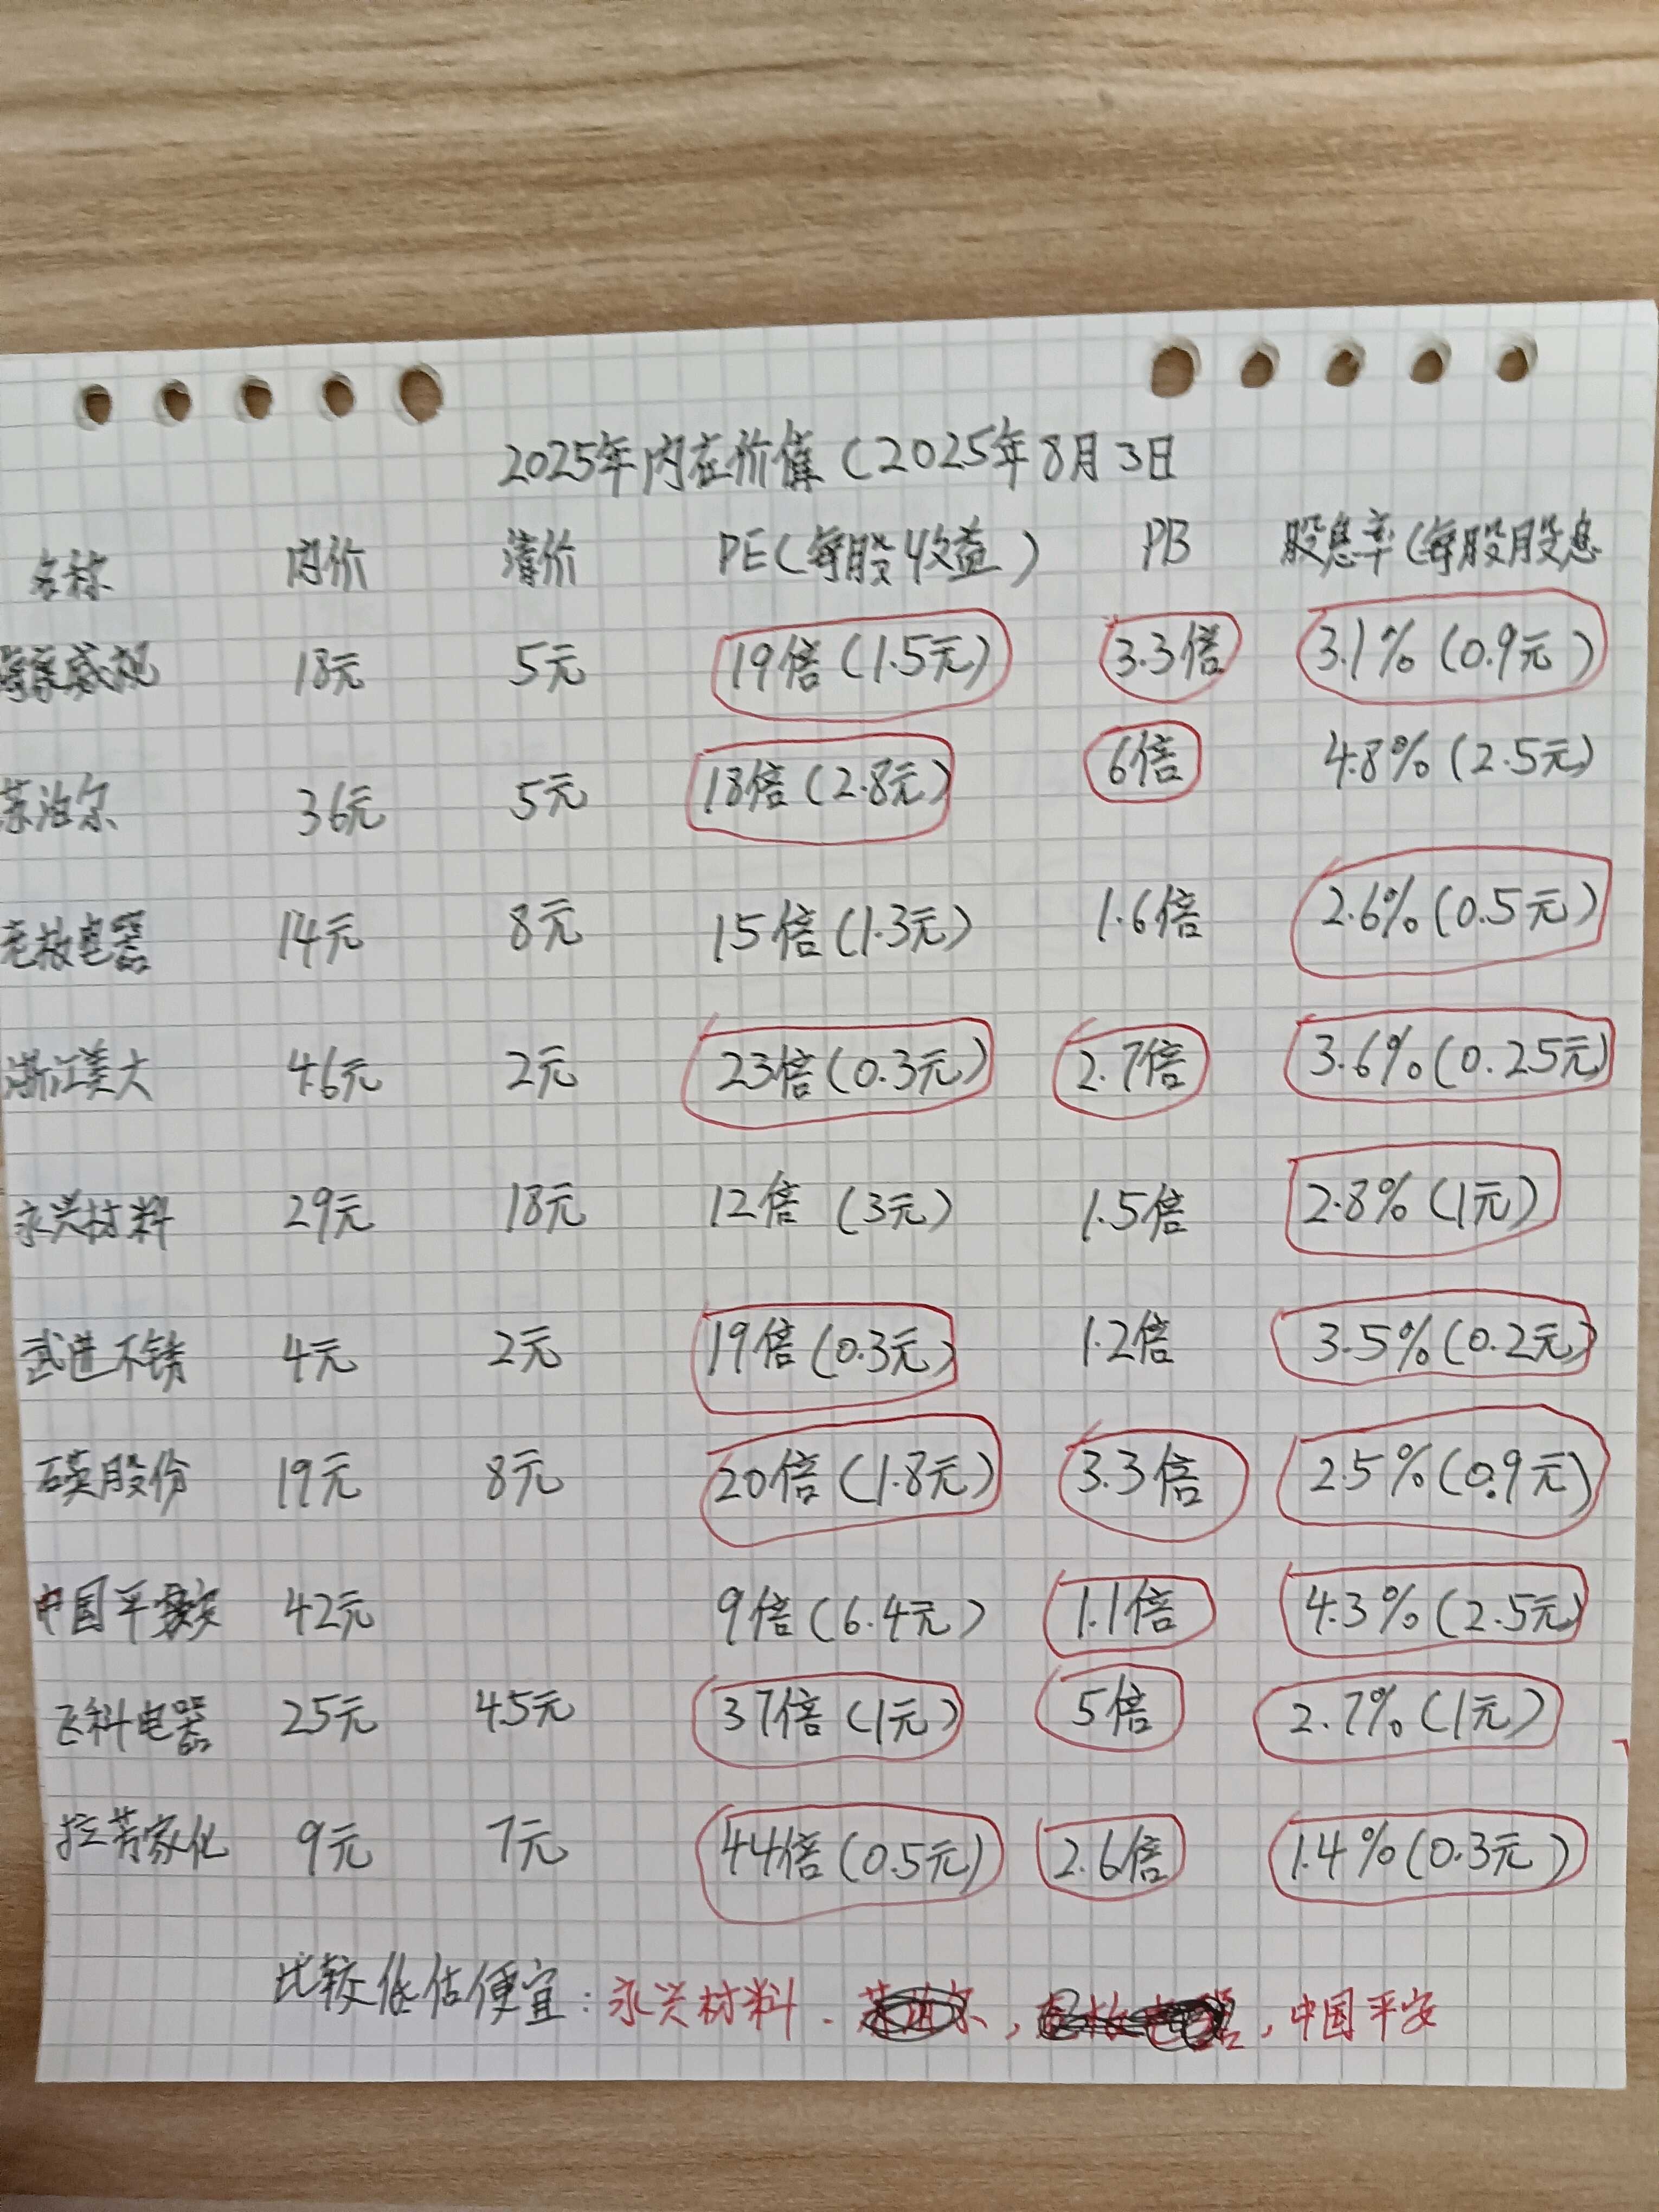 2025年内在价值(2025年8月3日
名称 内价 清价 PE(每股收益) PB 股息率(每股股息
海康威视 18元 5元 19倍(1.5元) 3.3倍 3.1%(0.9元)
苏泊尔 36元 5元 18倍(2.8元) 6倍 4.8%(2.5元)
老板电器 14元 8元 15倍(1.3元) 1.6倍 2.6%(0.5元)
浙江美大 4.6元 2元 23倍(0.3元) 2.7倍 3.6%(0.25元)
永兴材料 29元 18元 12倍(3元) 1.5倍 2.8%(1元)
武进不锈 4元 2元 19倍(0.3元) 1.2倍 3.5%(0.2元)
石英股份 19元 8元 20倍(1.8元) 3.3倍 2.5%(0.9元)
中国平安 42元 9倍(6.4元) 1.1倍 4.3%(2.5元)
飞科电器 25元 4.5元 37倍(1元) 5倍 2.7%(1元)
拉芳家化 9元 7元 44倍(0.5元) 2.6倍 1.4%(0.3元)
比较低估便宜:永兴材料. , , 中国平安